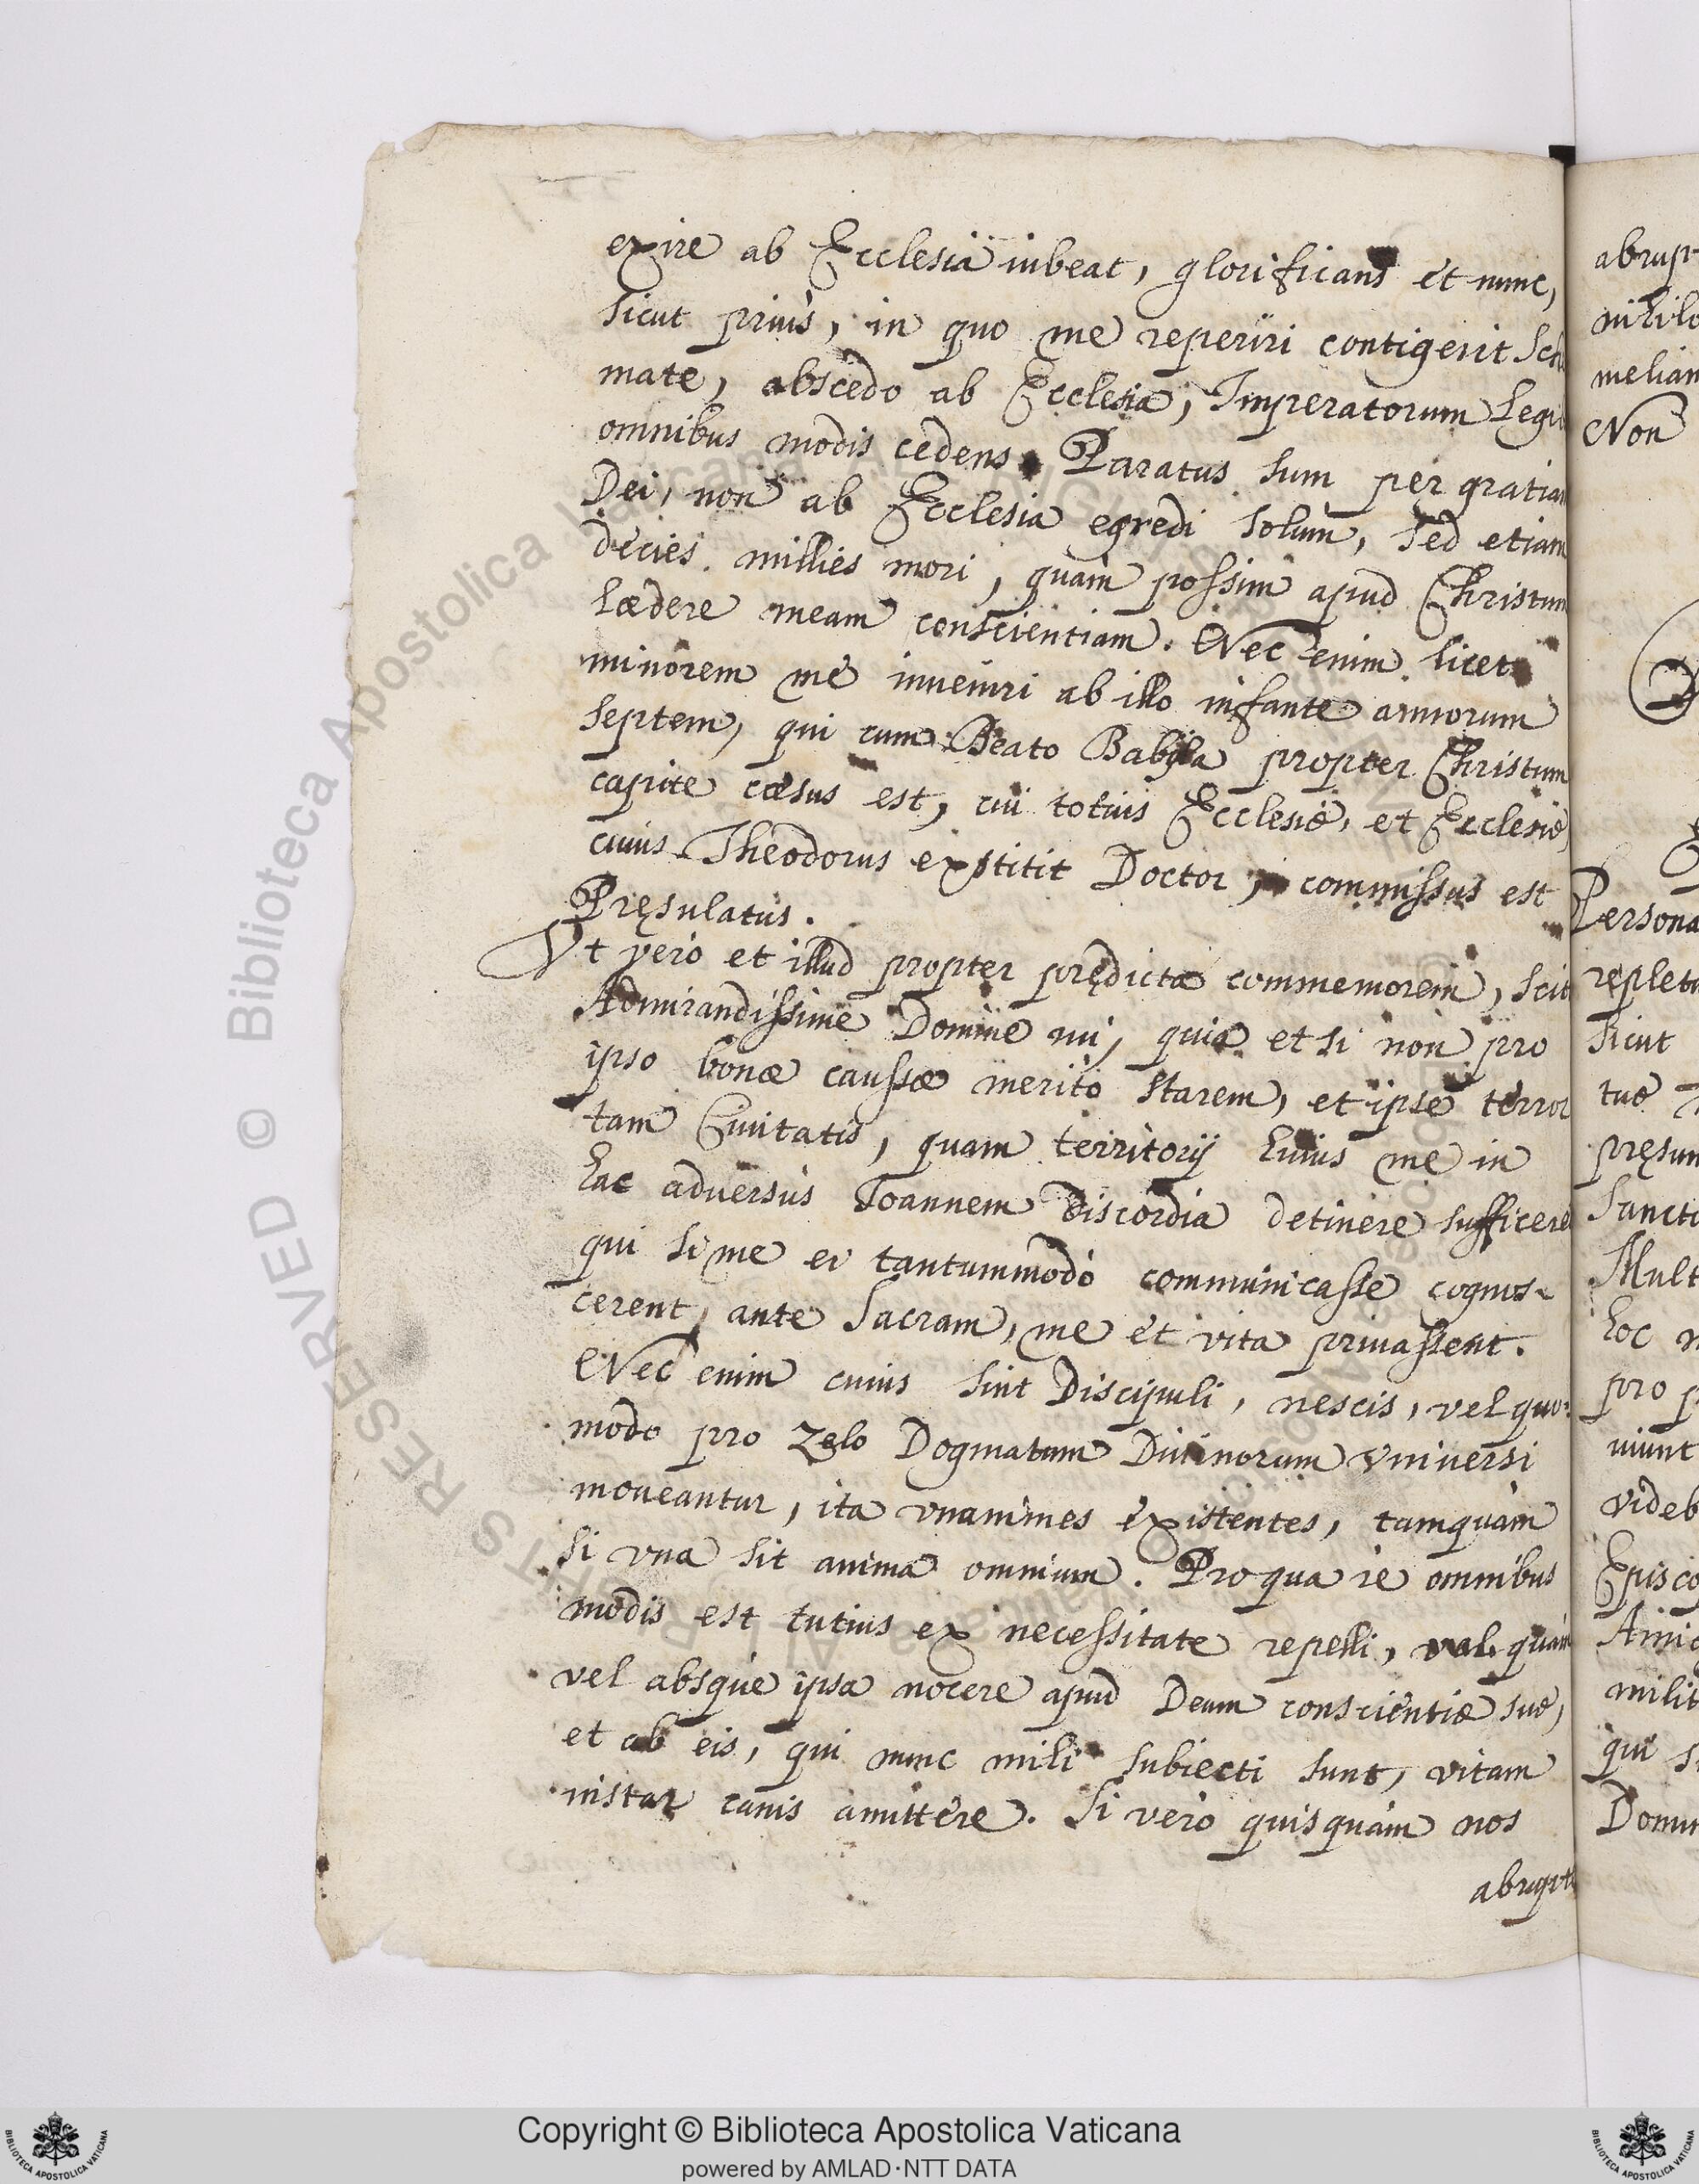 exire ab Ecclesia iubeat, glorificans et nunc,
sicut prius, in quo me reperiri contigerit Sche
mate, abscedo ab Ecclesia, Imperatorum Legi
omnibus modis cedens. Paratus sum per gratiam
Dei, non ab Ecclesia egredi solum, sed etiam
decies millies mori, quam possim apud Christum
lædere meam conscientiam. Nec enim licet
minorem me inueniri ab illo infante annorum
septem, qui cum Beato Babyla propter Christum
capite cæsus est, cui totius Ecclesiæ, et Ecclesiæ,
cuius Theodorus exstitit Doctor, commissus est
Pręsulatus.
Vt vero et illud propter prędicta commemorem, scit
Admirandissime Domine mi, quia et si non pro
ipso bonæ caussæ merito starem, et ipse terror
tam Ciuitatis, quam territorij huius me in
hac adversus Ioannem discordia detinere sufficeret
qui si me ei tantummodo communicasse cognos-
cerent, ante Sacram, me et vita priuassent.
Nec enim cuius sint Discipuli, nescis, vel quo-
modo pro zelo Dogmatum Diuinorum vniuersi
moueantur, ita vnanimes existentes, tamquam
si vna sit anima omnium. Pro qua re omnibus
modis est tutius ex necessitate repelli, quam
vel absque ipsa nocere apud Deum conscientiæ suæ,
et ab eis, qui nunc mihi subiecti sunt, vitam
instar canis amittere. Si vero quisquam nos
abrupte
abrupt
nihilo
melian
Non
Persona
repletu
sicut
tuæ
pręsum
Sancti
Mult
hoc n
pro p
uiunt
videb
Episco
Amic
milit
qui si
Domin
Copyright © Biblioteca Apostolica Vaticana
powered by AMLAD·NTT DATA